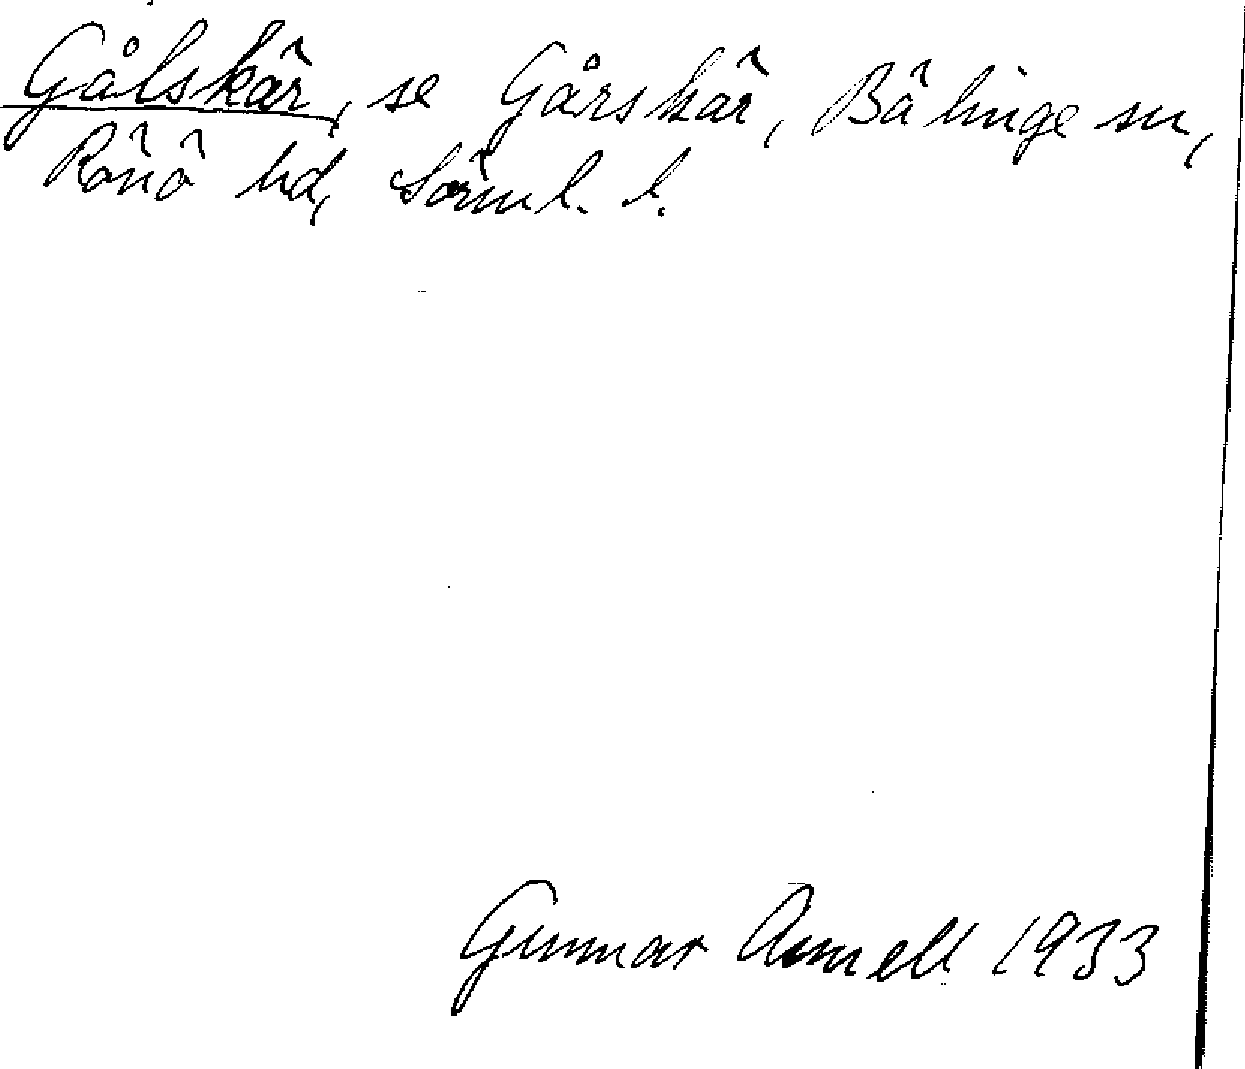 Gålskär, se Gårskär, Bälinge sn,
Rönö hd, Sörml. l.
Gunnar Annell 1933